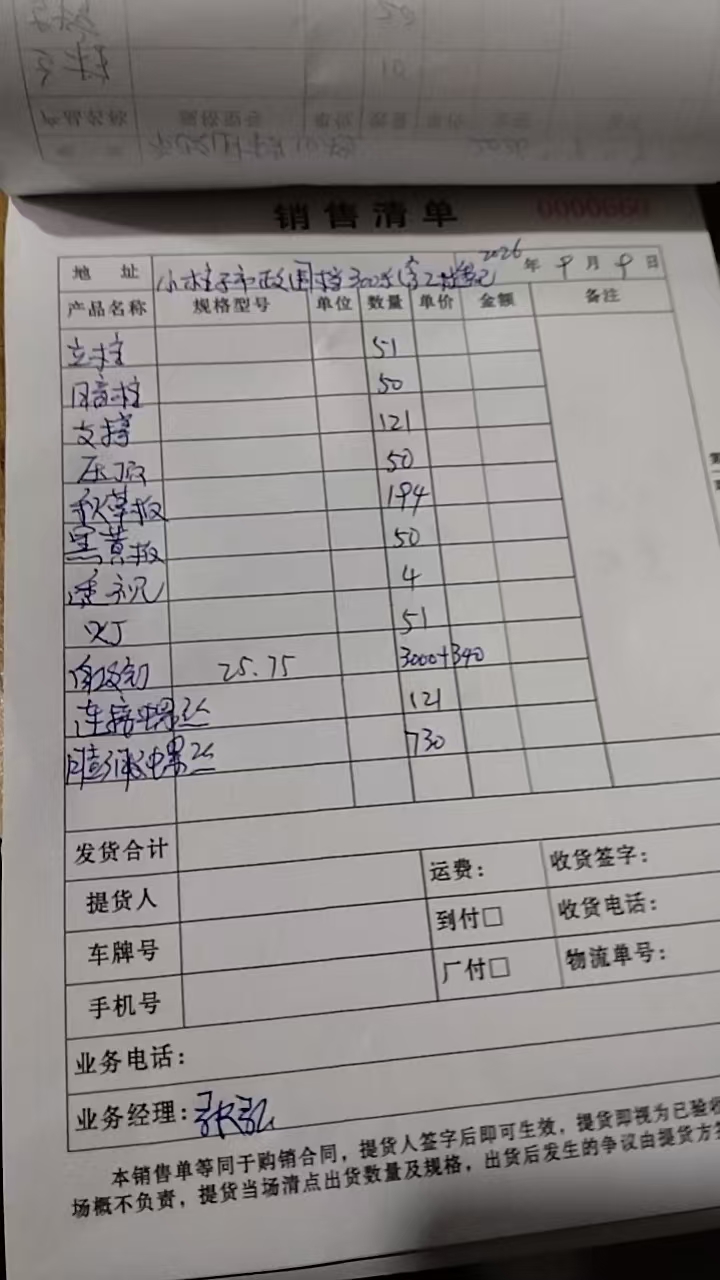 销售清单 0000660
地址 小柱子市政围挡300米 2026年9月9日
产品名称 规格型号 单位 数量 单价 金额 备注
立柱 51
暗柱 50
支撑 121
压顶 50
秋草板 194
黑黄板 50
透视 4
灯 51
25.75 3000+340
连接螺丝 121
膨胀螺丝 730
发货合计
提货人 运费: 收货签字:
车牌号 到付□ 收货电话:
手机号 厂付□ 物流单号:
业务电话:
业务经理:
本销售单等同于购销合同,提货人签字后即可生效,提货即视为已验收
场概不负责,提货当场清点出货数量及规格,出货后发生的争议由提货方